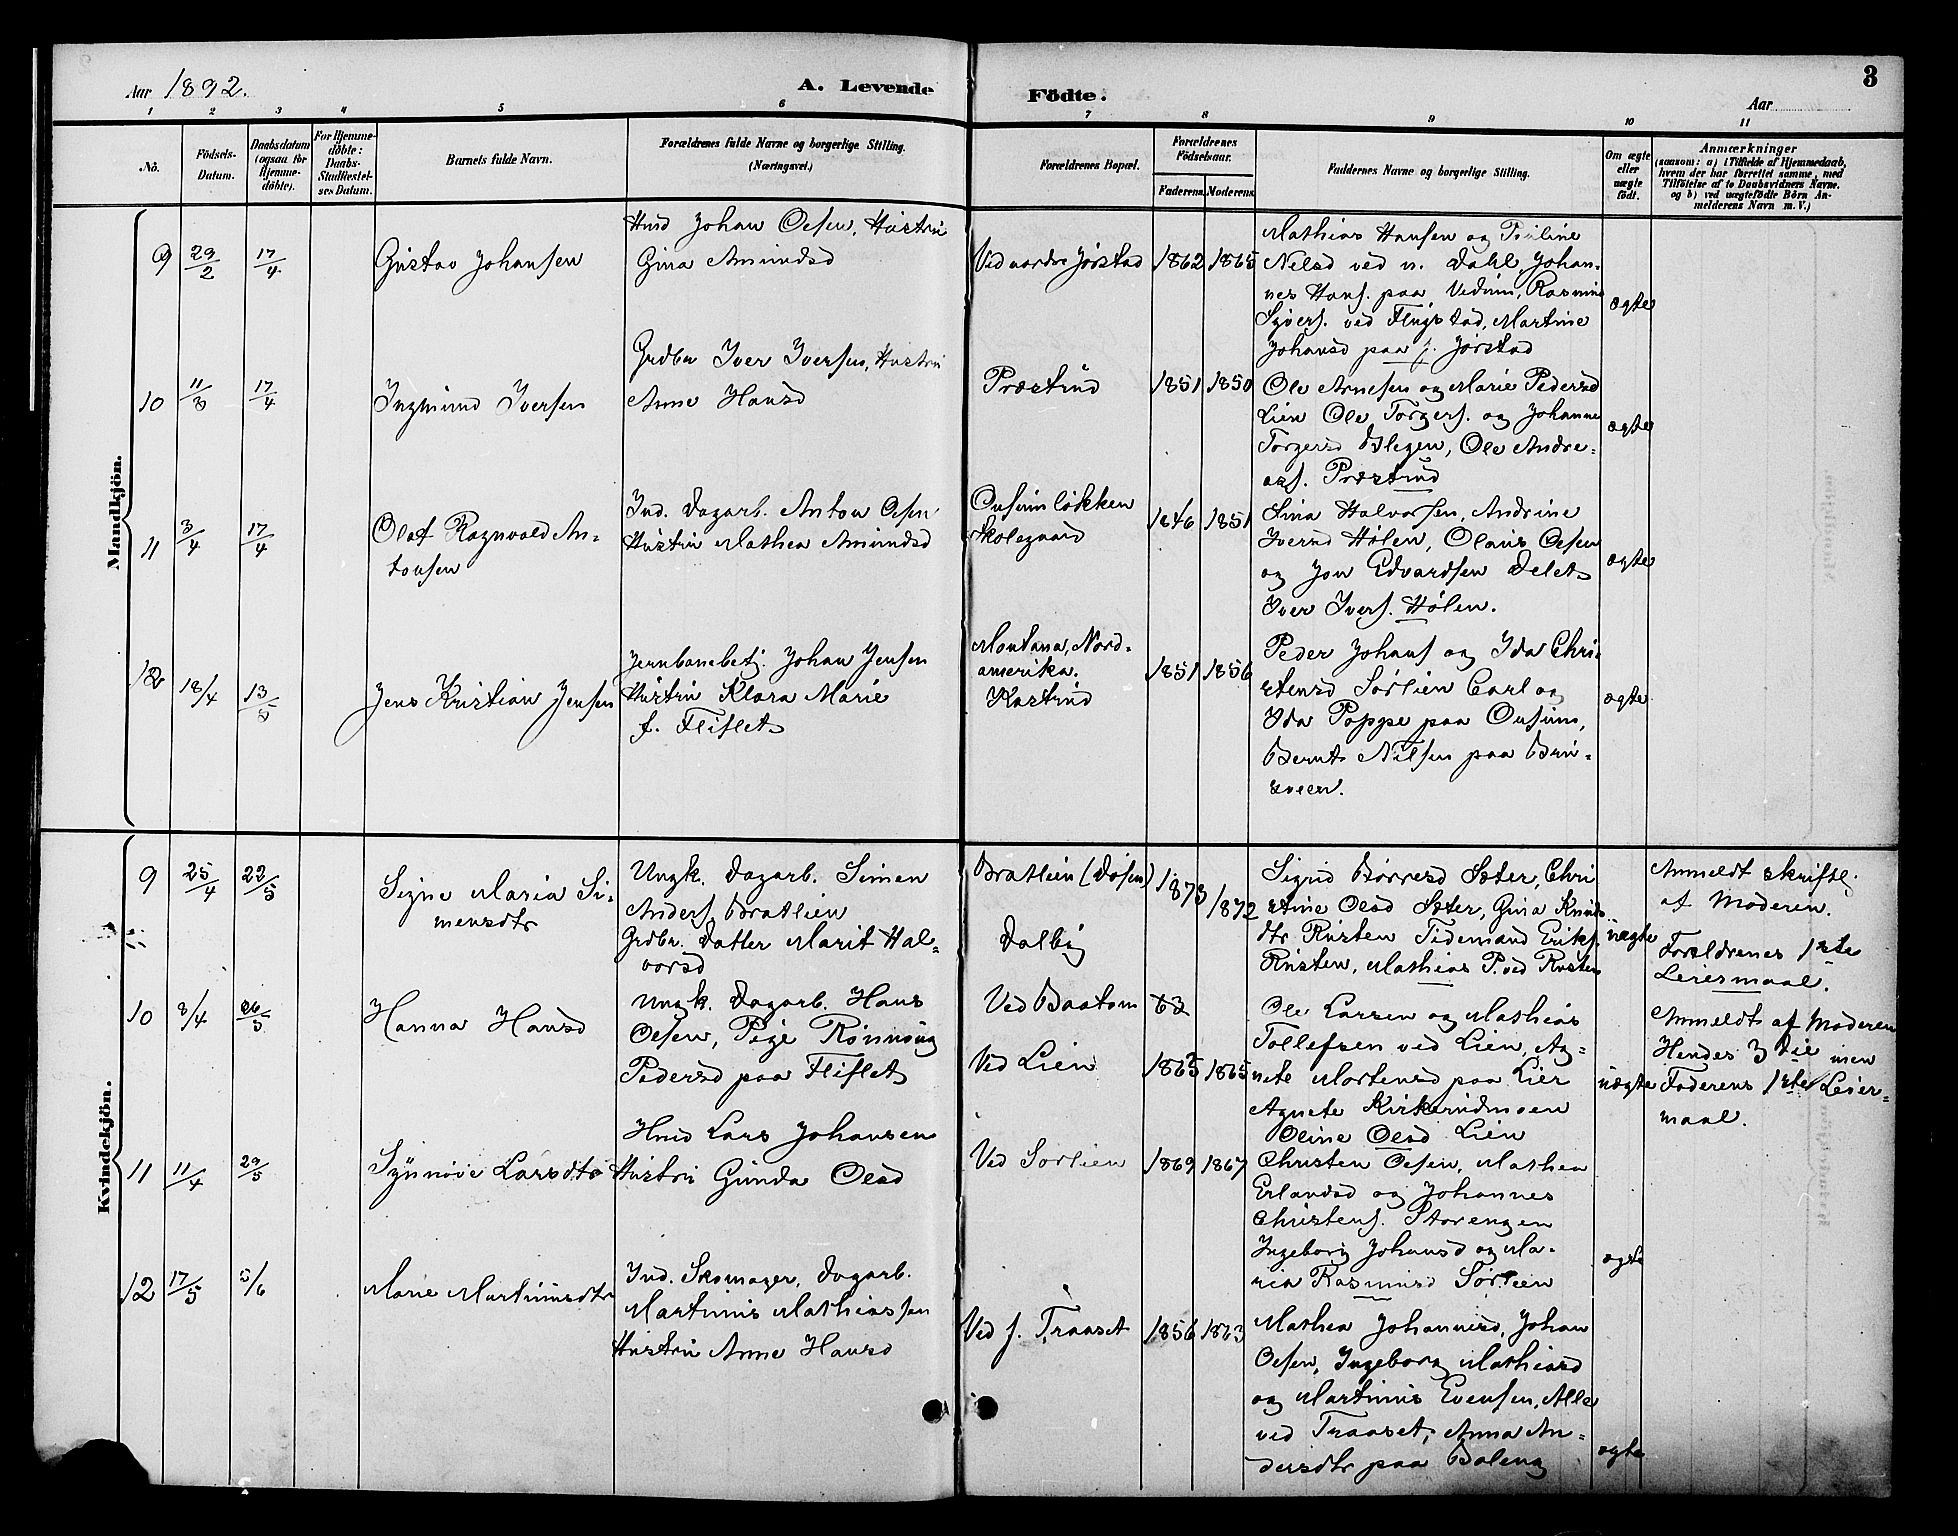 Aar 1892.
A. Levende
Födte.
3
Aar
1 2 3 4 5 6 7 8 9 10 11
No.
Födsels-
Datum.
Daabsdatum
(ogsaa for
Hjemme-
døbte).
For Hjemme-
døbte:
Daabs-
Stadfæstel-
ses Datum.
Barnets fulde Navn.
Forældrenes fulde Navne og borgerlige Stilling.
(Næringsvei.)
Forældrenes Bopæl.
Forældrenes
Födselsaar.
Faderens. Moderens.
Faddernes Navne og borgerlige Stilling.
Om ægte
eller
uægte
födt.
Anmærkninger
(saasom: a) i Tilfælde af Hjemmedaab,
hvem der har forrettet samme, med
Tilföielse af to Daabsvidners Navne.
og b) ved uægtefödte Börn An-
melderens Navn m. V.)
Mandkjön.
9
29/2
17/4
Gustav Johansen
Husd Johan Olsen, Hustru
Gina Amundsd
Ved nordre Jørstad
1862
1865
Mathias Hansen og Pauline
Nelsd ved n. Dahl, Johan-
nes Hans. paa Vedum, Rasmus
Syvers. ved Flugstad, Martine
Johansd paa s. Jørstad
ægte
10
11/3
17/4
Ingmund Iversen
Grdbr Iver Iversen, Hustru
Anne Hansd
Præstrud
1851
1850
Ole Arnesen og Marie Pedersd
Lien Ole Torgers. og Johanne
Torgersd Hlegen, Ole Andre-
ass. Præstrud
ægte
11
3/4
17/4
Olaf Ragnvald An-
tonsen
Ind. Dagarb. Anton Olsen
Hustru Mathea Amundsd
Ousumløkken
Skolegaard
1846
1851
Sina Halvorsen, Andrine
Iversd Hølen, Olaus Olsen
og Jon Edvardsen Delet
Iver Ivers. Hølen.
ægte
12
18/4
13/8
Jens Kristian Jensen
Jernbanebetj. Johan Jensen
Hustru Klara Marie
f. Fliflet
Montana, Nord-
amerika.
Kastrud
1851
1856
Peder Johans og Ida Chri-
stensd Sørlien Carl og
Ida Poppe paa Ousum,
Bernt Nilsen paa Brun-
sveen.
ægte
Kvindekjön.
9
25/4
22/5
Signe Maria Si-
mensdtr
Ungk. Dagarb. Simen
Anders. Bratlien
Grdbr. Datter Marit Hal-
vorsd
Bratlien (Døsen)
Dalby
1873
1872
Sigrid Børresd Sæter, Chri
stine Olsd Sæter, Gina Knuds-
dtr Rusten Tidemand Eriks.
Rusten, Mathias P. ved Rusten
uægte
Anmeldt skriftl.
af Moderen.
Forældrenes 1ste
Leiermaal.
10
8/4
26/5
Hanna Hansd
Ungk. Dagarb. Hans
Olsen, Pige Rønnaug
Pedersd paa Fliflet
Ved Baatom
Ved Lien
63
1865
1865
Ole Larsen og Mathias
Tollefsen ved Lien, Ag-
nete Mortensd paa Lier
Agnete Kirkerudmoen
Oline Olsd Lien
uægte
Anmeldt af Moderen
Hendes 3die men
Faderens 1ste Leier-
maal.
11
11/4
29/5
Synnøve Larsdtr
Husd Lars Johansen
Hustru Gunda Olsd
Ved Sørlien
1869
1867
Christen Olsen, Mathea
Erlandsd og Johannes
Christens. Storengen
Ingeborg Johansd og Ma-
rea Rasmusd Sørlien
ægte
12
17/5
5/6
Marie Martinusdtr
Ind. Skomager, Dagarb.
Martinus Mathiassen
Hustru Anne Hansd
Ved s. Traaset
1856
1863
Mathea Johannesd, Johan
Olsen, Ingeborg Mathiasd
og Martinus Evensen, Alle
ved Traaset, Anna An-
dersdtr paa Baleng
ægte